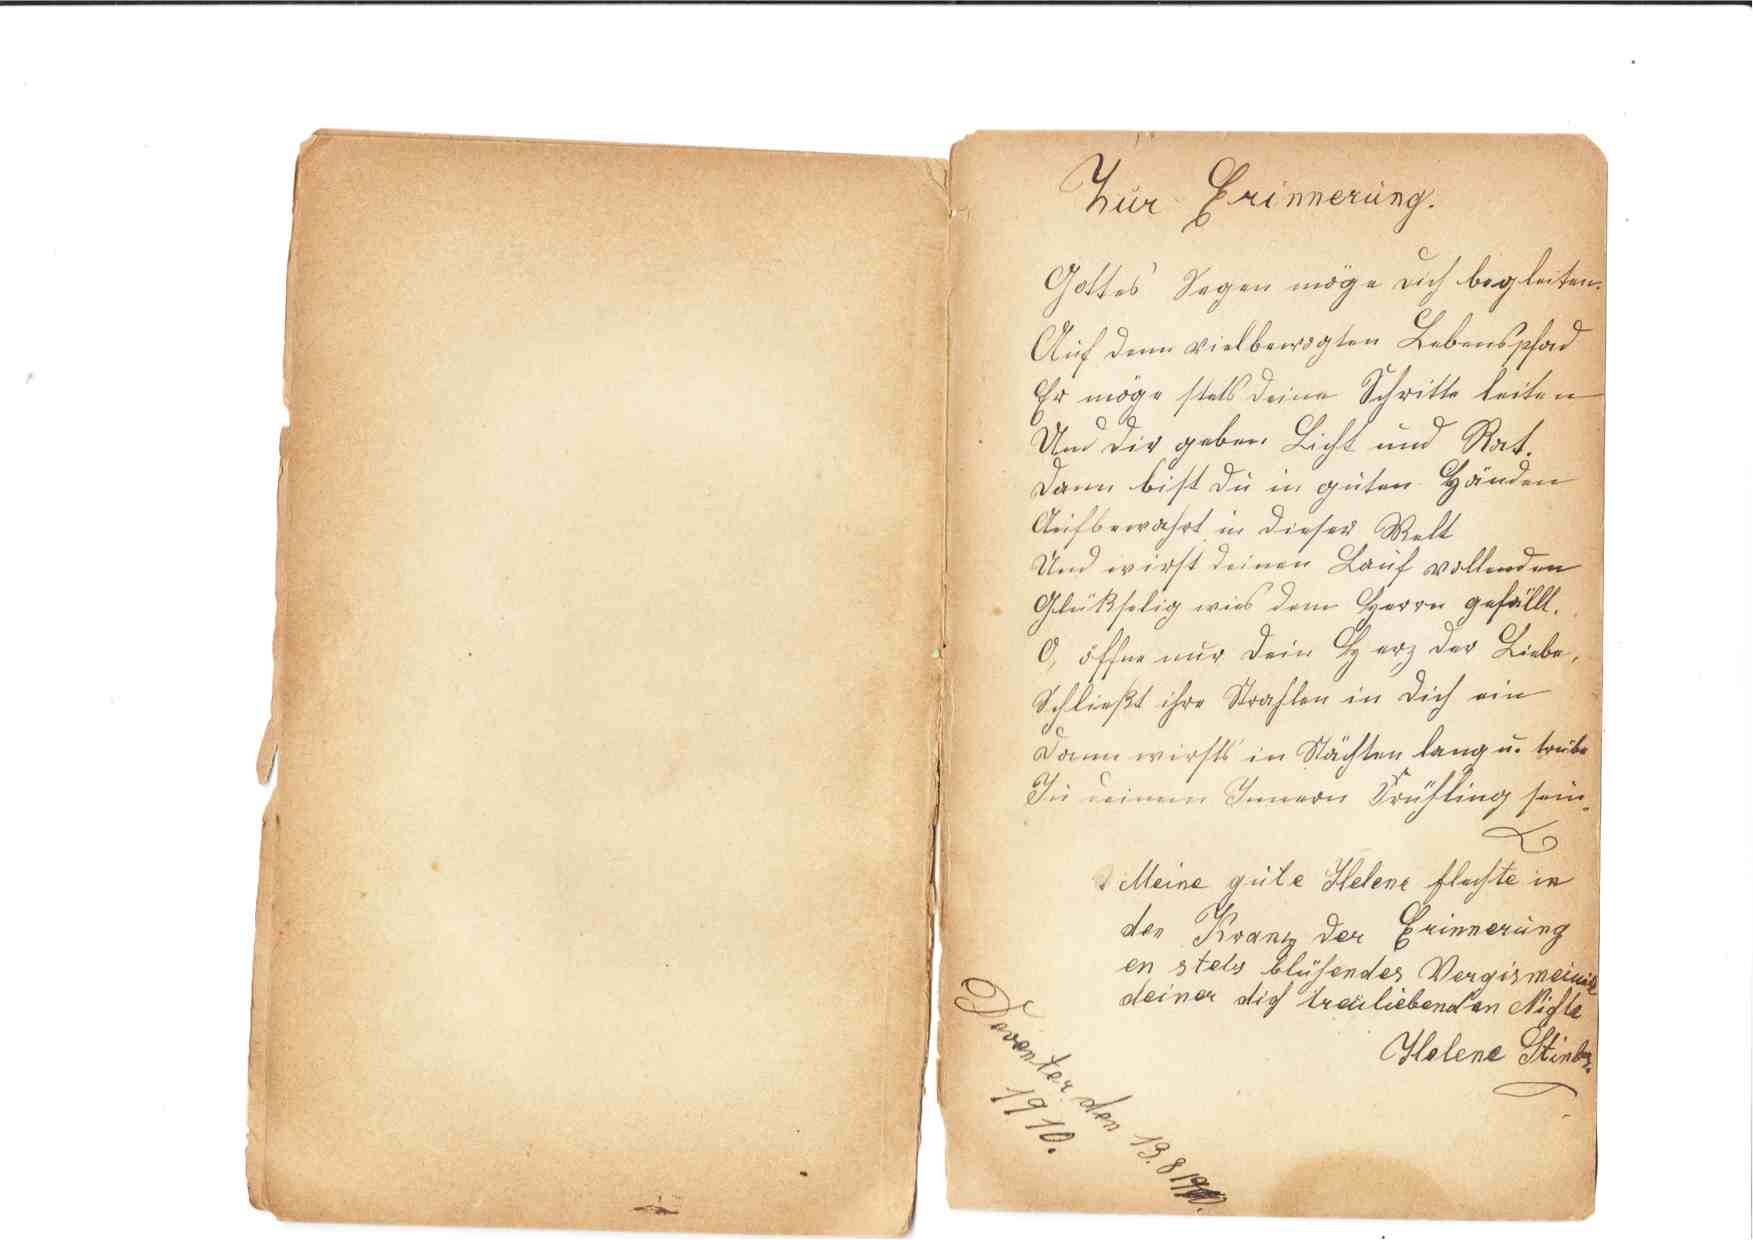 Zur Erinnerung.
Gottes Segen möge dich begleiten.
Auf dem vielbewegten Lebenspfad
Er möge stets deine Schritte leiten
Und dir geben Licht und Rat.
Dann bist du in guten Händen
Aufbewahrt in dieser Welt
Und wirst deinen Lauf vollenden
Glükselig wies dem Herrn gefällt.
O, öffne nur dein Herz der Liebe,
Schließt ihre Strahlen in dich ein
Dann wirsts in Nächten lang u. trübe
In deinem Innern Frühling sein.
Meine gute Helene flechte in
den Kranz der Erinnerung
en stets blühendes
deiner dich treuliebenden Nichte
Helene
Deventer den 13. 8
1910.